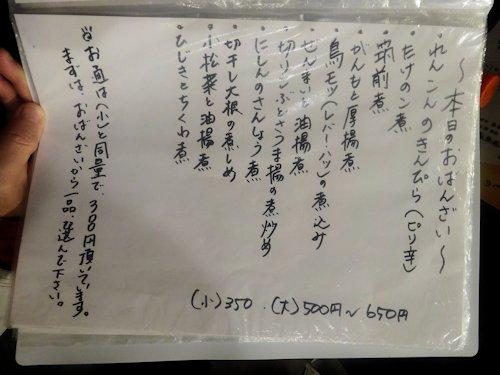 ～本日のおばんざい～
・れんこんのきんぴら(ピリ辛)
・たけのこ煮
・筑前煮
・がんもと厚揚煮
・鳥モツ(レバー・ハツ)の煮込み
・ぜんまいと油揚煮
・切りこんぶとさつま揚の煮炒め
・にしんのさんしょう煮
・切干し大根の煮しめ
・小松菜と油揚煮
・ひじきとちくわ煮
(小)350・(大)500円～650円
お通は(小)と同量で、300円頂いています。
まずは、おばんざいから一品、選んで下さい。